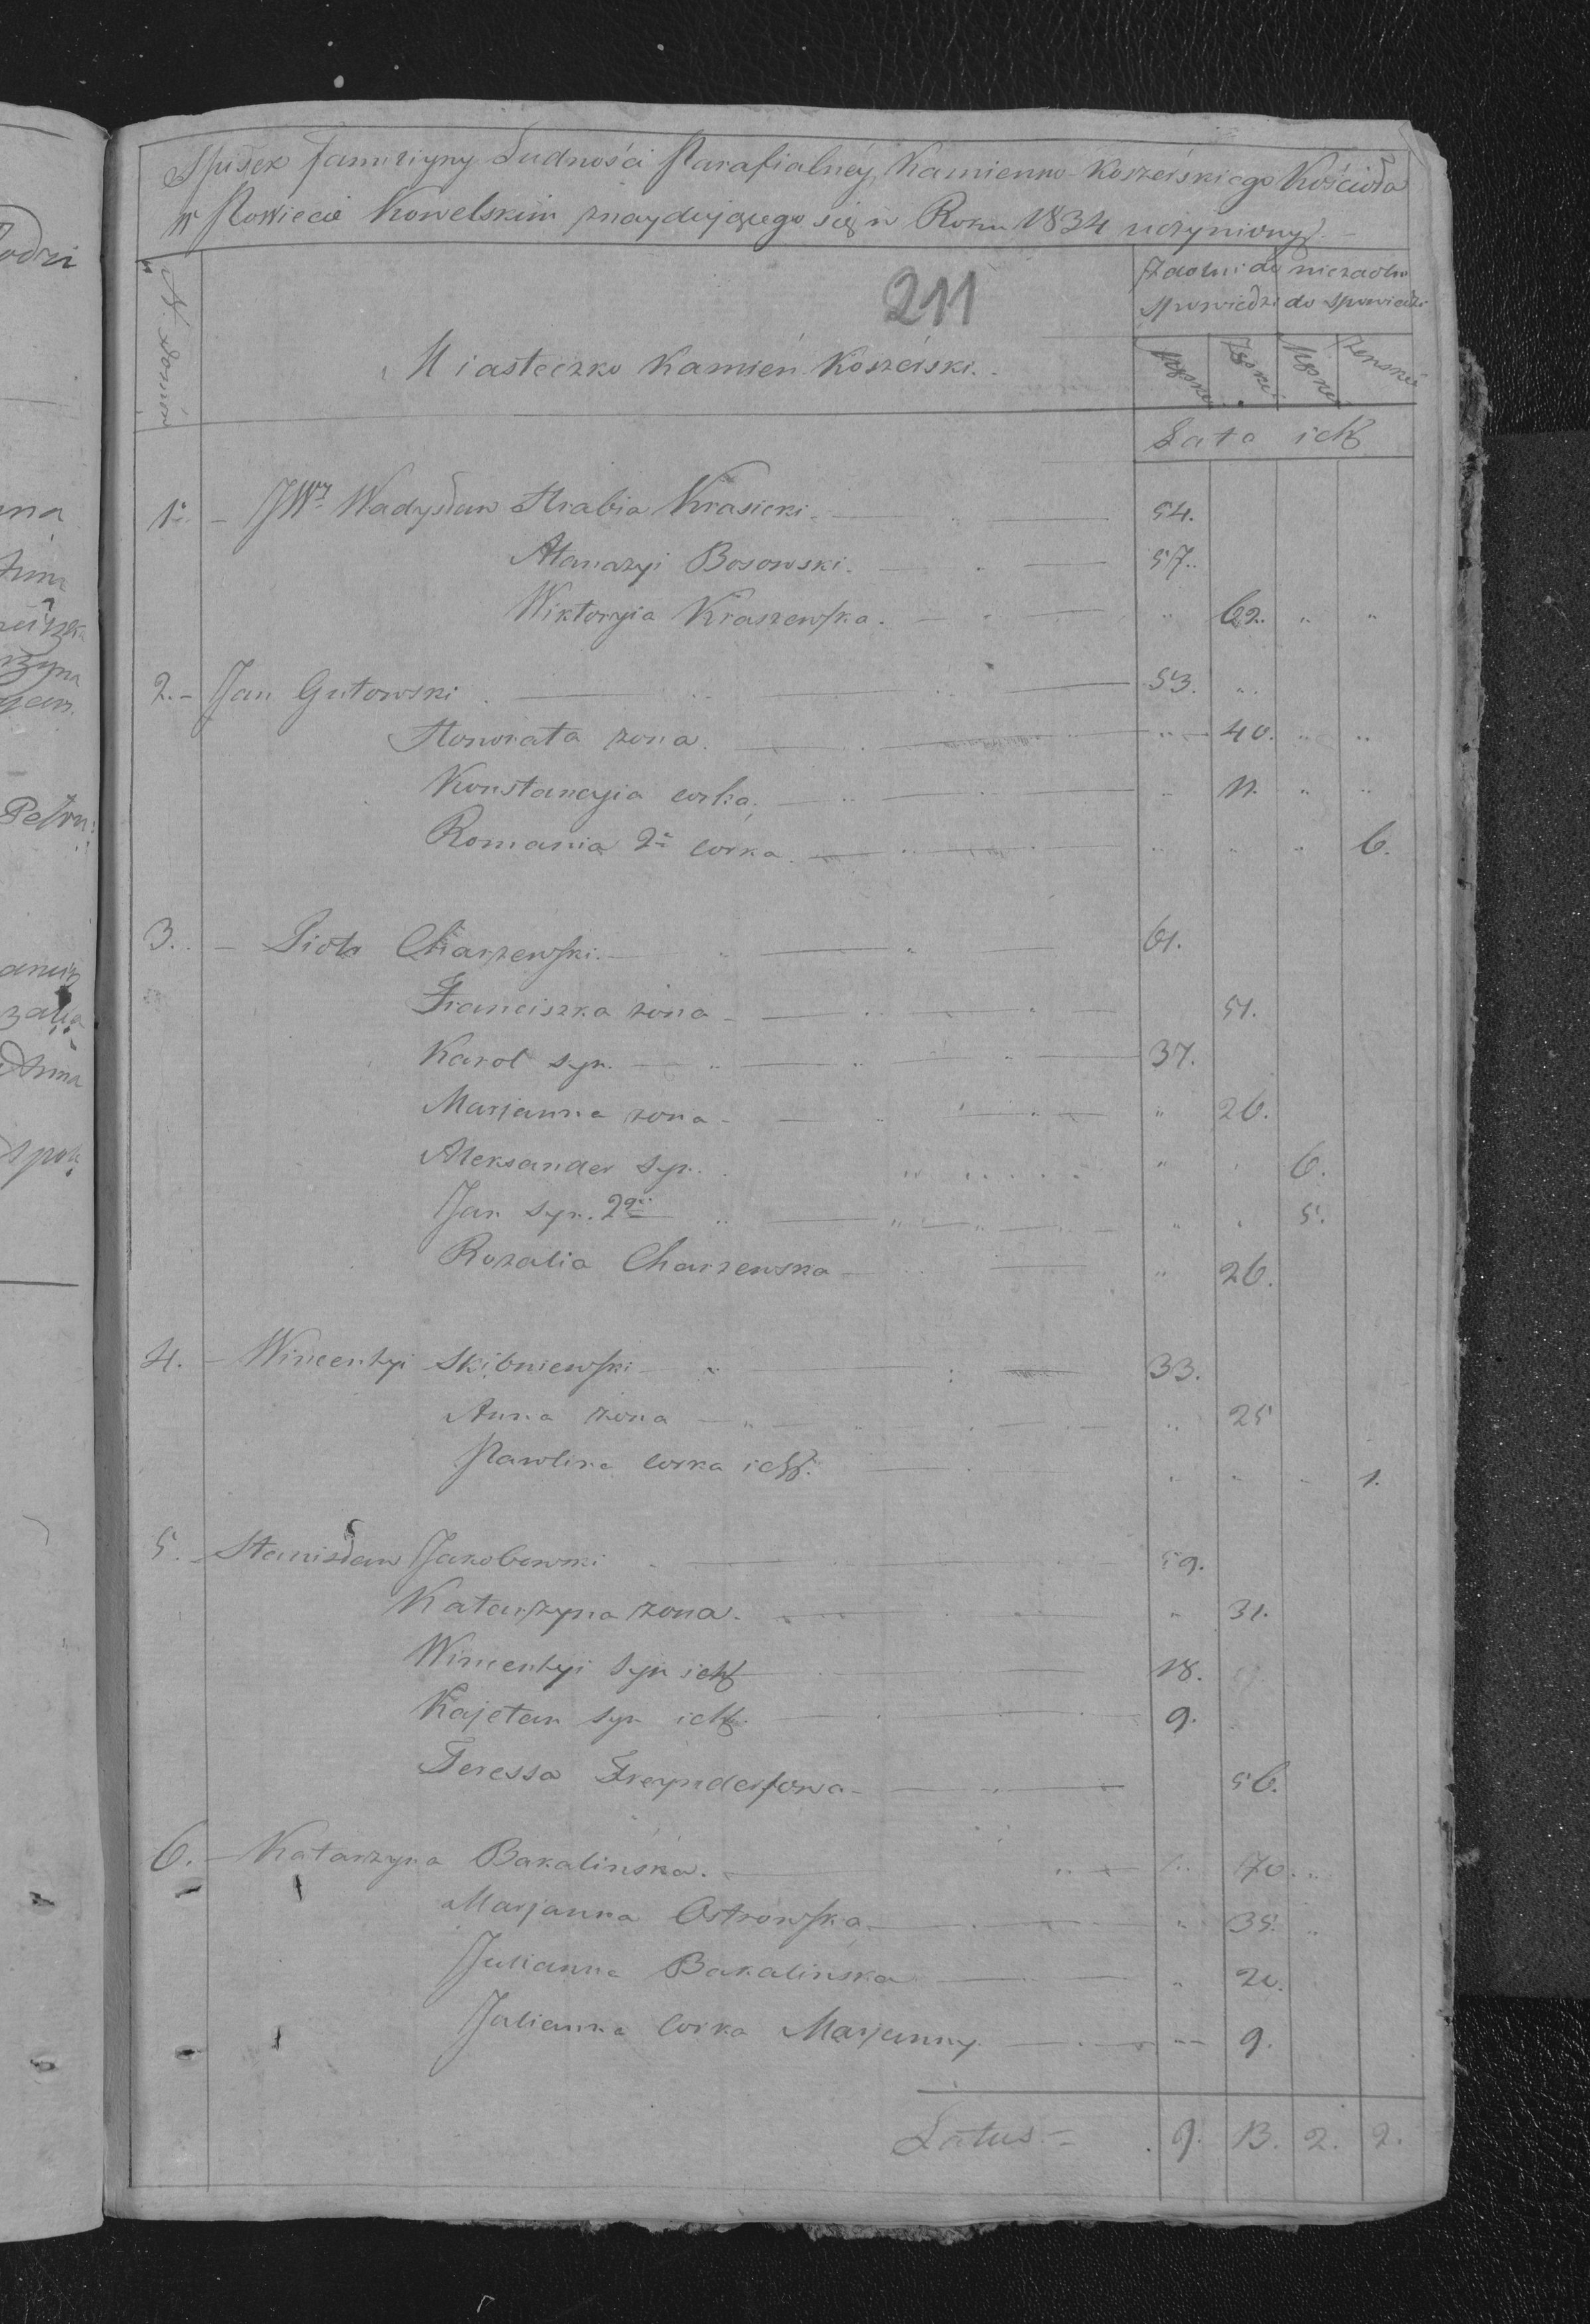 Spisek familiyny Ludności Parafialnéy Kamienno-Koszérskiego Kościoła
w Powiecie Kowelskim znaydującego się w Roku 1834 uczyniony.
N. domów
211
Zdolni do spowiedzi
niezdolni do spowiedzi
Miasteczko Kamień Koszérski.
Męskiej Żęskiej Męskiej Zenskiej
Lata ich
1. JWy Wadysław Hrabia Krasicki. 54.
Atanazyi Bosowski. 57.
Wiktoryia Kraszewska. 62.
2. Jan Gutowski 53.
Honorata zona. 40.
Konstancyia corka. 11.
Romania 2a córka. 6.
3. Piotr Charzewski. 61.
Franciszka żona 51.
Karol syn. 37.
Marjanna zona 26.
Aleksander syn. 6.
Jan syn. 2gi 5.
Rozalia Charzewska 26.
4. Wincentyi Skibniewski 33.
Anna żona 25
Pawlina corka ich. 1.
5. Stanisław Jakobowski 59.
Katarzyna zona. 31.
Wincentyi syn ich 18.
Kajetan syn ich 9.
Teressa 56.
6. Katarzyna Bakalińska. 70.
Marjanna Ostrowska 35.
Julianna Bakalinska 20.
Julianna corka Marjanny 9.
Latus 9. 13. 2. 2.